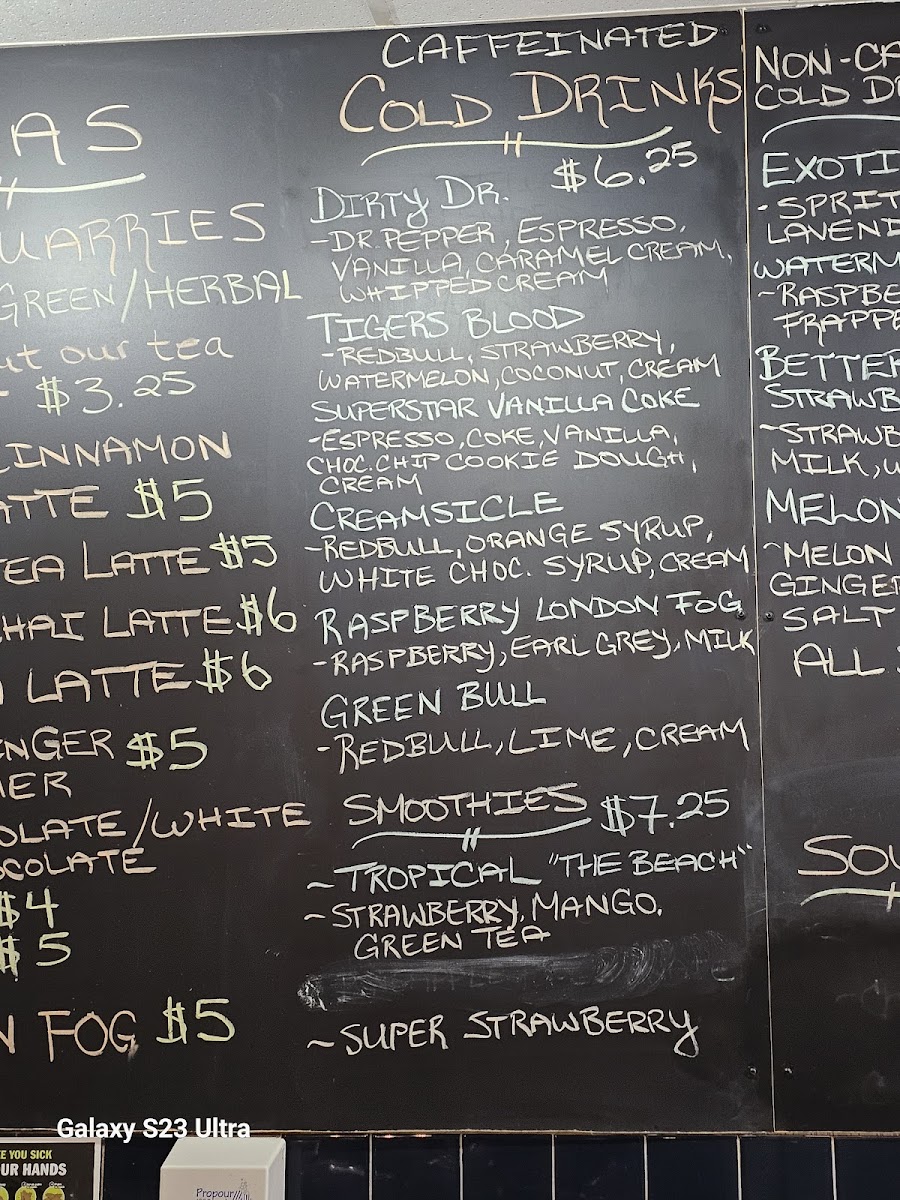 AS
UARRIES
GREEN/HERBAL
ut our tea
- $3.25
CINNAMON
ATTE $5
TEA LATTE $5
CHAI LATTE $6
LATTE $6
ENGER $5
IER
OLATE/WHITE
OCOLATE
$4
$5
N FOG $5
CAFFEINATED
COLD DRINKS
$6.25
DIRTY DR.
-DR. PEPPER, ESPRESSO,
VANILLA, CARAMEL CREAM,
WHIPPED CREAM
TIGERS BLOOD
-REDBULL, STRAWBERRY,
WATERMELON, COCONUT, CREAM
SUPERSTAR VANILLA COKE
-ESPRESSO, COKE, VANILLA,
CHOC. CHIP COOKIE DOUGH,
CREAM
CREAMSICLE
-REDBULL, ORANGE SYRUP,
WHITE CHOC. SYRUP, CREAM
RASPBERRY LONDON FOG
-RASPBERRY, EARL GREY, MILK
GREEN BULL
-REDBULL, LIME, CREAM
SMOOTHIES $7.25
~ TROPICAL "THE BEACH"
~ STRAWBERRY, MANGO,
GREEN TEA
~ SUPER STRAWBERRY
NON-CA
COLD DR
EXOTI
- SPRIT
LAVEND
WATERM
~RASPBE
FRAPPE
BETTER
STRAWB
~STRAWB
MILK, W
MELON
~MELON
GINGER
SALT
ALL S
SOU
Galaxy S23 Ultra
E YOU SICK
UR HANDS
Propour